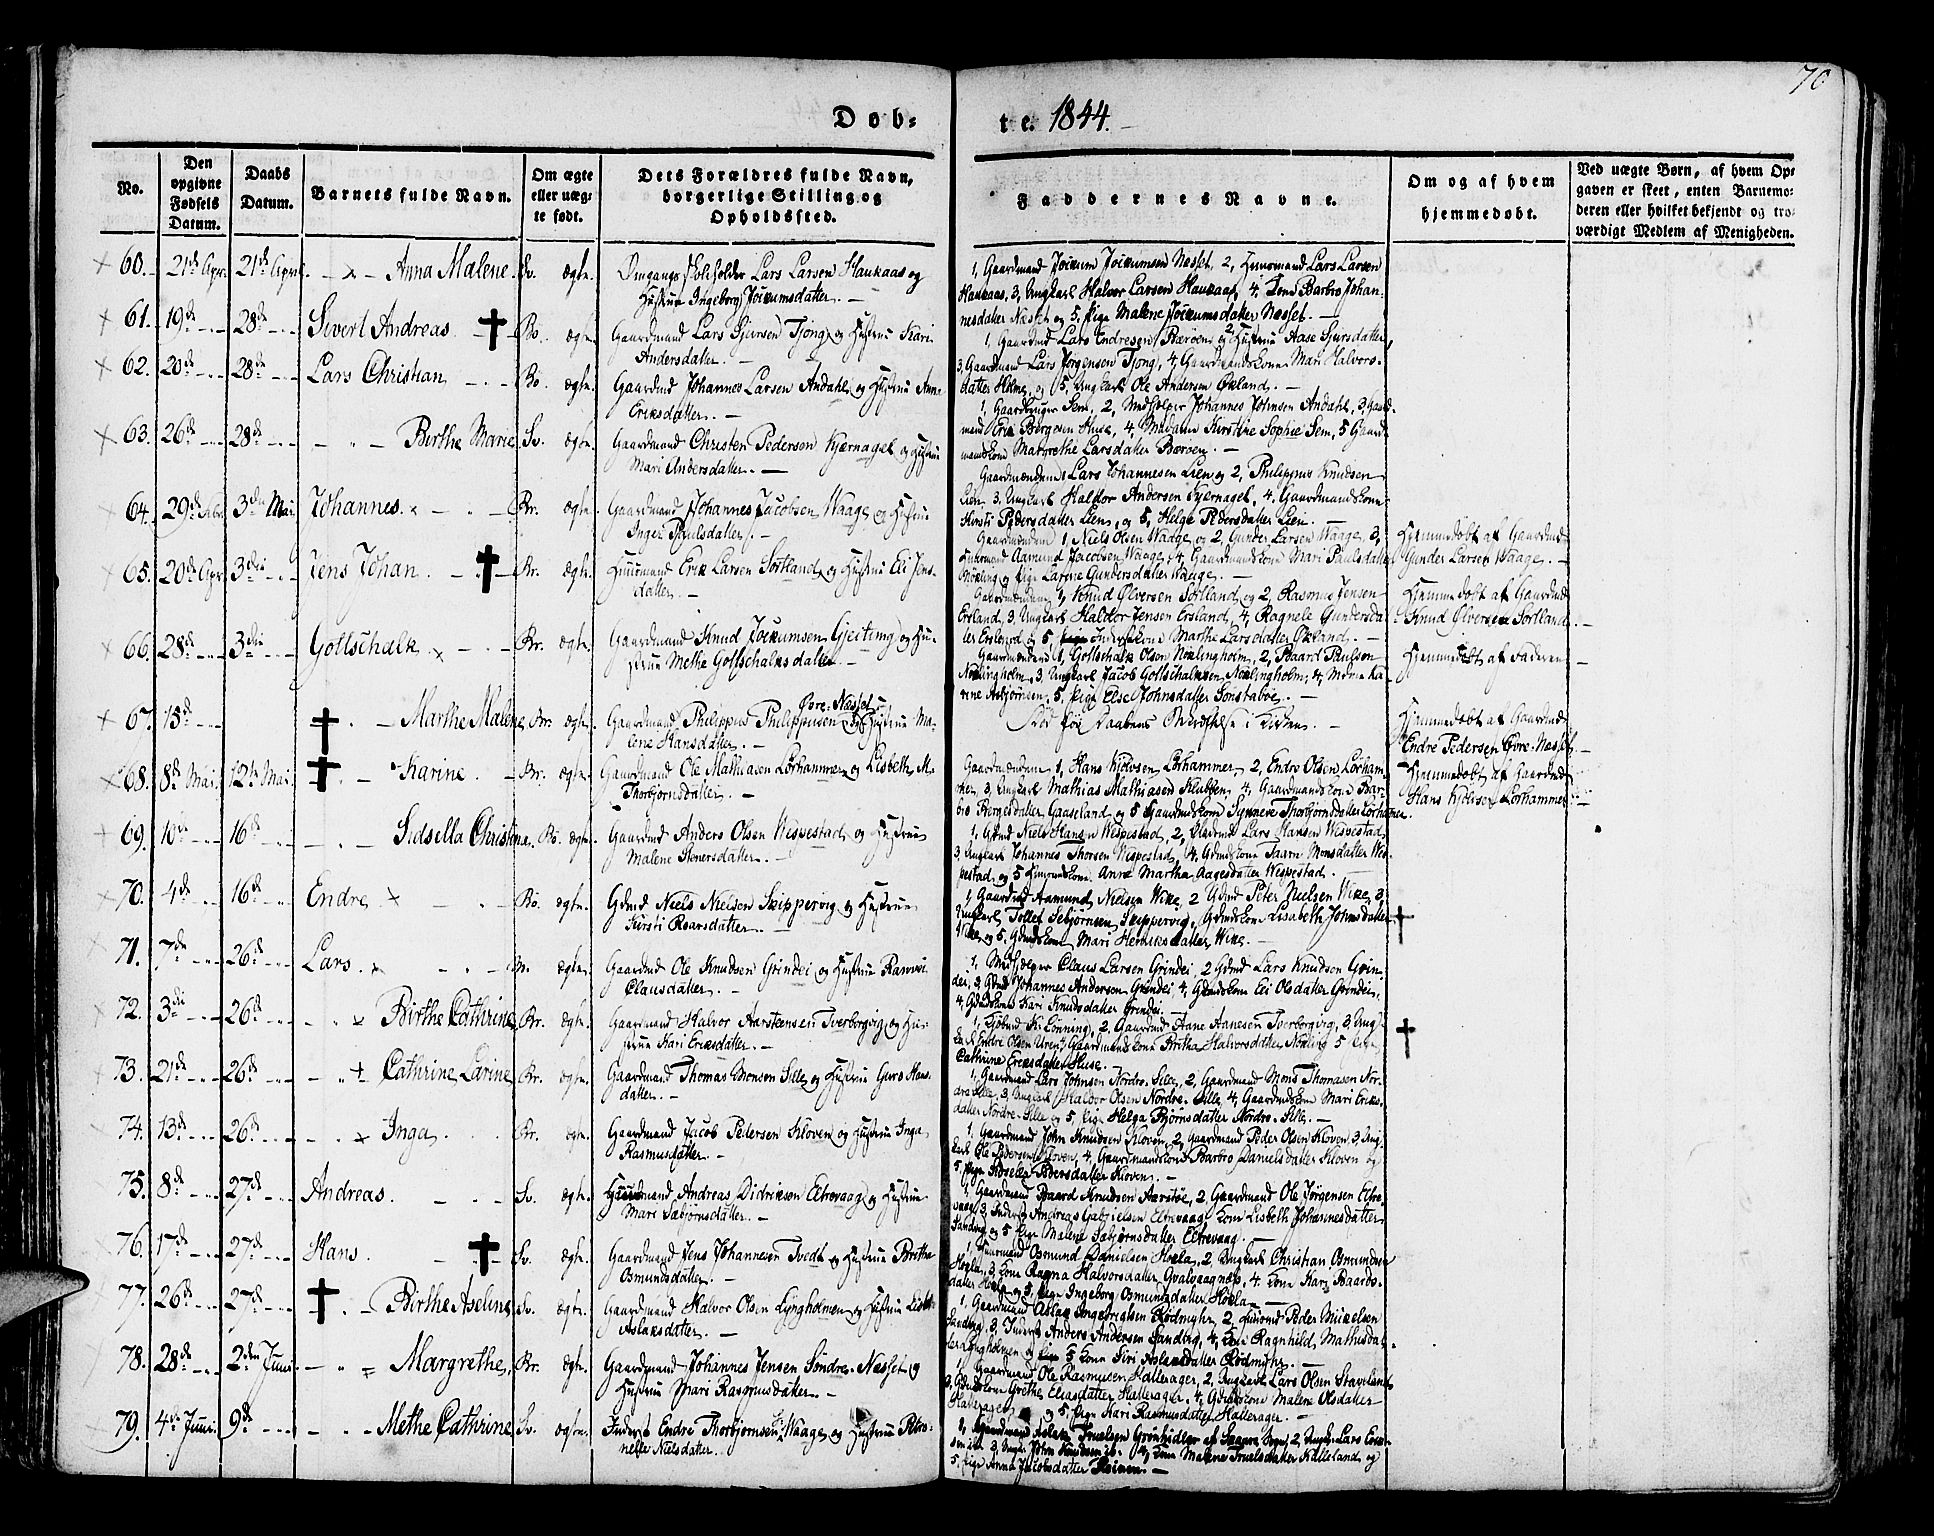 70
Døb-
te. 1844.
No.
Den opgivne Fødsels Datum.
Daabs Datum.
Barnets fulde Navn.
Om ægte eller uægte født.
Dets Forældres fulde Navn, borgerlige Stilling og Opholdssted.
Faddernes Navne.
Om og af hvem hjemmedøbt.
Ved uægte Børn, af hvem Op-
gaven er skeet, enten Barnemo-
deren eller hvilket bekjendt og tro-
værdigt Medlem af Menigheden.
60. 21de Apr. 21de April Anna Malene Sv. ægte. Omgangs Skoleholder Lars Larsen Haukaas og
Hustrue Ingeborg Joikumsdatter.
1, Gaardmand Joikum Joikumsen Næsset, 2, Huusmand Lars Larsen
Haukaas, 3, Ungkarl Halvor Larsen Haukaas, 4, Kone Barbro Johan-
nesdatter Næsset og 5, Pige Malene Joikumsdatter Næsset.
61. 19de 28de Sivert Andreas Bo. ægte. Gaardmand Lars Sjursen Tjong og Hustrue Kari
Andersdatter.
1, Gaardmd Lars Endresen Børøen, 2, Hustrue Aase Sjursdatter,
3, Gaardmand Lars Jørgensen Tjong, 4, Gaardmandskone Mari Halvors-
datter Holme, og 5, Ungkarl Ole Andersen Økland.
62. 20de 28de Lars Christian Bo. ægte. Gaardmd Johannes Larsen Andahl og Hustrue Anna
Eriksdatter.
1, Gaardbruger Sem, 2, Medhjelper Johannes Johnsen Andahl, 3, Gaard-
mand Erik Bergesen Huse, 4, Madame Kirstine Sophie Sem, 5 Gaard-
mandskone Margrethe Larsdatter Børøen.
63. 26de 28de Birthe Marie Sv. ægte. Gaardmand Christen Pedersen Kjærnagel og Hustrue
Mari Andersdatter.
Gaardmændene 1, Lars Johannesen Lien og 2, Philippus Knudsen
Lien, 3, Ungkarl Haldor Andersen Kjernagel, 4, Gaardmandskone
Kirsti Pedersdatter Lien, og 5, Helge Pedersdatter Lien.
64. 29de Febr. 3die Mai Johannes. Br. ægte. Gaardmand Johannes Jacobsen Waage og Hustrue
Inger Paulsdatter.
Gaardmændene 1, Niels Olsen Waage og 2, Gunder Larsen Waage, 3,
Huusmand Aamund Jacobsen Waage, 4, Gaardmandskone Mari Paulsdatter
Nøkling og Pige Larine Gundersdatter Waage.
Hjemmedøbt af Gaardmd
Gunder Larsen Waage.
65. 20de Apr. 3die Jens Johan. Br. ægte. Huusmand Erik Larsen Sørtland og Hustrue Eli Jens-
datter.
Gaardmændene 1, Knud Ølversen Sørtland og 2, Rasmus Jensen
Ersland, 3, Ungkarl Haldor Jensen Ersland, 4, Ragnele Gundersdat-
ter Ersland og 5, Marthe Larsdatter Økland.
Hjemmedøbt af Gaardmd
Knud Ølversen Sørtland.
66. 28de 3die Gottschalk Br. ægte. Gaardmand Knud Joikumsen Gjesting og Hu-
strue Methe Gottschalksdatter.
Gaardmændene 1, Gottschalk Olsen Nøklingholm, 2, Baard Paulsen
Nøklingholm, 3, Ungkarl Jacob Gottschalksen Nøklingholm, 4, Ka-
rine Asbjørnsen, 5, Pige Else Johnsdatter Sønstabøe.
Hjemmedøbt af Faderen
67. 15de Marthe Malene Br. ægte. Gaardmand Philippus Philippusen Øvre-Næsset og Hustrue Ma-
lene Hansdatter.
Død før Daabens Bekræftelse i Kirken.
Hjemmedøbt af Gaardmd
Endre Pedersen Øvre-Næsset
68. 8de Mai. 12te Mai. Karine. Br. ægte. Gaardmand Ole Mathiasen Lørhammer og Lisbeth M.
Thorbjørnsdatter.
Gaardmændene 1, Hans Kjølvsen Lørhammer, 2, Endre Olsen Lørham-
mer, 3, Ungkarl Mathias Mathiasen Klubben, 4, Gaardmandskone Bar-
bro Bergesdatter Gaaseland og 5 Gaardmdskone Synneve Thorbjørnsdatter Lørhammer.
Hjemmedøbt af Gaardmd
Hans Kjølvsen Lørhammer
69. 10de 16de Sidsella Christina. Bo. ægte. Gaardmd Anders Olsen Wespestad og Hustrue
Malene Stenersdatter.
1, Gdmd Niels Hansen Wespestad, 2, Gaardmd Lars Hansen Wespestad,
3, Ungkarl Johannes Thorsen Wespestad, 4, Gdmdskone Taarn Monsdatter Wes-
pestad og 5 Anne Martha Aagesdatter Wespestad.
70. 4de 16de Endre Bo. ægte. Gdmd Niels Nielsen Skippervig og Hustrue
Kirsti Roarsdatter.
1, Gaardmd Aamund Nielsen Wike, 2 Gdmd Peter Nielsen Wike, 3,
Ungkarl Tollef Sebjørnsen Skippervig, Gdmdskone Lisabeth Johnsdatter
Wike, og 5, Gdmdskone Mari Henriksdatter Wike.
71. 7de 26de Lars. M. ægte. Gaardmd Ole Knudsen Grindei og Hustrue Rannvei
Clausdatter.
1, Medhjelper Claus Larsen Grindei, 2 Gdmd Lars Knudsen Grin-
dei, 3, Gmd Johannes Andersen Grindei, 4, Gdmdskone Eli Olsdatter Grindei,
4, Gdmdskone Kari Knudsdatter Grindei.
72. 3die 26de Birthe Cathrine Br. ægte. Gaardmand Halvor Aarsteensen Tverborgvig og Hu-
strue Kari Eriksdatter.
1, Kjøbmd Kr. Lønning, 2, Gaardmd Aane Aanesen Tverborgvig, 3, Ung-
karl Endre Olsen Uren, Gaardmandskone Britha Halvorsdatter Nøkling 5 Pige
Cathrine Eriksdatter Huse.
73. 21de 26de Cathrine Larine Br. ægte. Gaardmand Thomas Monsen Sille og Hustrue Guro Hans-
datter.
1, Gaardmand Lars Johnsen Nordre-Sille, 2, Gaardmand Mons Thomasen Nor-
dre Sille, 3, Ungkarl Halvor Olsen Nordre-Sille, 4, Gaardmdskone Mari Eriks-
datter Nordre-Sille og 5, Pige Helga Bjørnsdatter Nordre-Sille.
74. 13de 26de Inga. Br. ægte. Gaardmand Jacob Pedersen Kloven og Hustrue Inga
Rasmusdatter.
1, Gaardmand John Knudsen Kloven, 2, Gaardmand Peder Olsen Kloven, 3, Ung-
karl Ole Pedersen Kloven, 4, Gaardmandskone Barbro Danielsdatter Kloven og
5, Pige Sidsele Pedersdatter Kloven.
75. 8de 27de Andreas. Sv. ægte. Huusmand Andreas Didriksen Eltrevaag og Hustrue
Mari Sæbjørnsdatter.
1, Gaardmand Baard Knudsen Aarstøe, 2, Gaardmand Ole Jørgensen Eltre-
vaag, 3, Inderst Andreas Gabrielsen Eltrevaag, Kone Lisbeth Johannesdatter
Sandvig og 5 Pige Malene Sæbjørnsdatter Eltrevaag.
76. 17de 27de Hans. Sv. ægte. Gaardmand Jens Johannesen Tvedt og Hustrue Brithe
Osmundsdatter.
1, Huusmand Osmund Danielsen Høkla, 2, Ungkarl Christian Osmundsen
Høkla, 3, Kone Ragna Halvorsdatter Qvalvaagnæs, 4, Kone Kari Baards-
datter Høkla og 5, Pige Ingeborg Osmundsdatter Høkla.
77. 26de 27de Birthe Aselene Sv. ægte. Gaardmand Halvor Olsen Lyngholmen og Hustrue Lisbet
Aslaksdatter.
1, Gaardmand Aslak Ingebrigtsen Rødmyhr, 2, Huusmd Peder Mikkelsen
Sandvig, 3, Inderst Anders Andersen Sandvig, 4, Kone Ragnhild Mathisdat-
ter Lyngholmen og 5 Kone Siri Aslaksdatter Rødmyhr.
78. 28de 2den Juni Margrethe. Br. ægte. Gaardmand Johannes Jensen Søndre-Næsset og
Hustrue Mari Rasmusdatter.
1, Gaardmand Ole Rasmusen Hallerager, 2, Ungkarl Lars Olsen Stavland,
3, Gdmdskone Grethe Eliasdatter Hallerager, 4, Gdmdskone Malene Olsdatter
Hallerager og 5, Pige Kari Rasmusdatter Hallerager.
79. 4de Juni. 9de Methe Cathrine Sv. ægte. Inderst Endre Thorbjørnsen Waage og Hustrue Petro-
nelle Nielsdatter.
1, Gaardmand Aslak Truelsen Grønhidler af Skaare Sogn, 2, Ungk. Lars Erik-
sen 3, Ungk. John Knudsen 4, Kone Malene Truelsdatter Kalleland og
5, Pige Anna Jacobsdatter